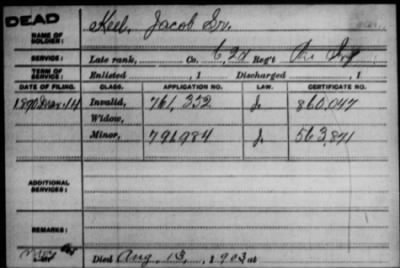 DEAD
NAME OF SOLDIER: Keel, Jacob Sr.
SERVICE: Late rank, Co. 6, 2d Reg't
TERM OF SERVICE: Enlisted , 1 Discharged , 1
DATE OF FILING. CLASS. APPLICATION NO. LAW. CERTIFICATE NO.
1890 14 Invalid, 761,352 J. 860,047
Widow,
Minor, 791984 J. 563,871
ADDITIONAL SERVICES:
REMARKS:
Died Aug. 13, 1903, at